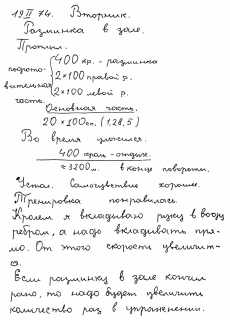 19 II 74. Вторник.
Разминка в зале.
Проплыл.
подгото-
вительная
часть
400 кр. - разминка
2×100 правой р.
2×100 левой р.
Основная часть.
20×100 сп. (1.28,5)
Во время уложился.
400 - отдых.
≈3200 м. в конце повороты.
Устал. Самочувствие хорошее.
Тренировка понравилась.
Кролем я вкладываю руку в воду
ребром, а надо вкладывать пря-
мо. От этого скорость увеличит-
ся.
Если разминку в зале кончил
рано, то надо будет увеличить
количество раз в упражнении.